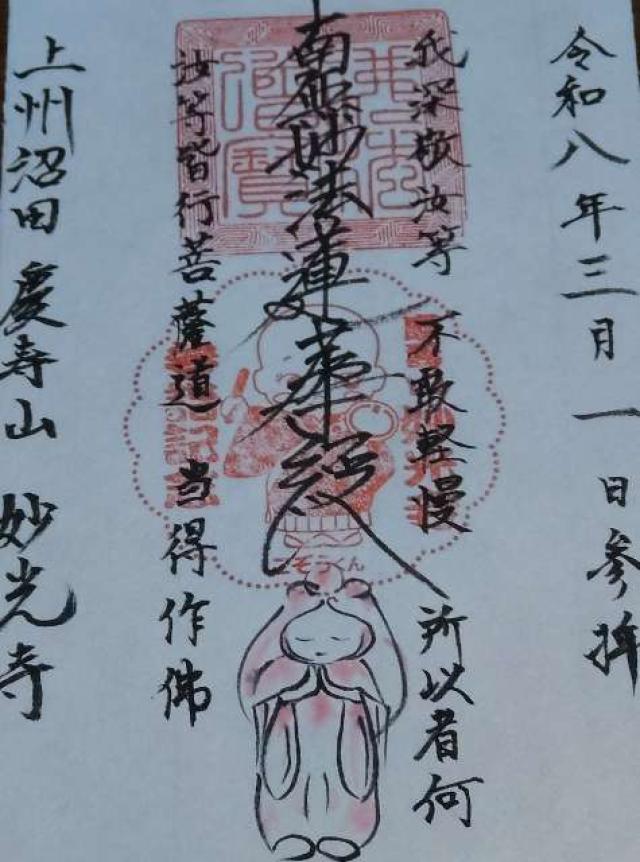 令和八年三月一日参拝
我深敬汝等 不敢軽慢 所以者何
南無妙法蓮華経
汝等皆行菩薩道 当得作佛
上州沼田 慶寿山 妙光寺